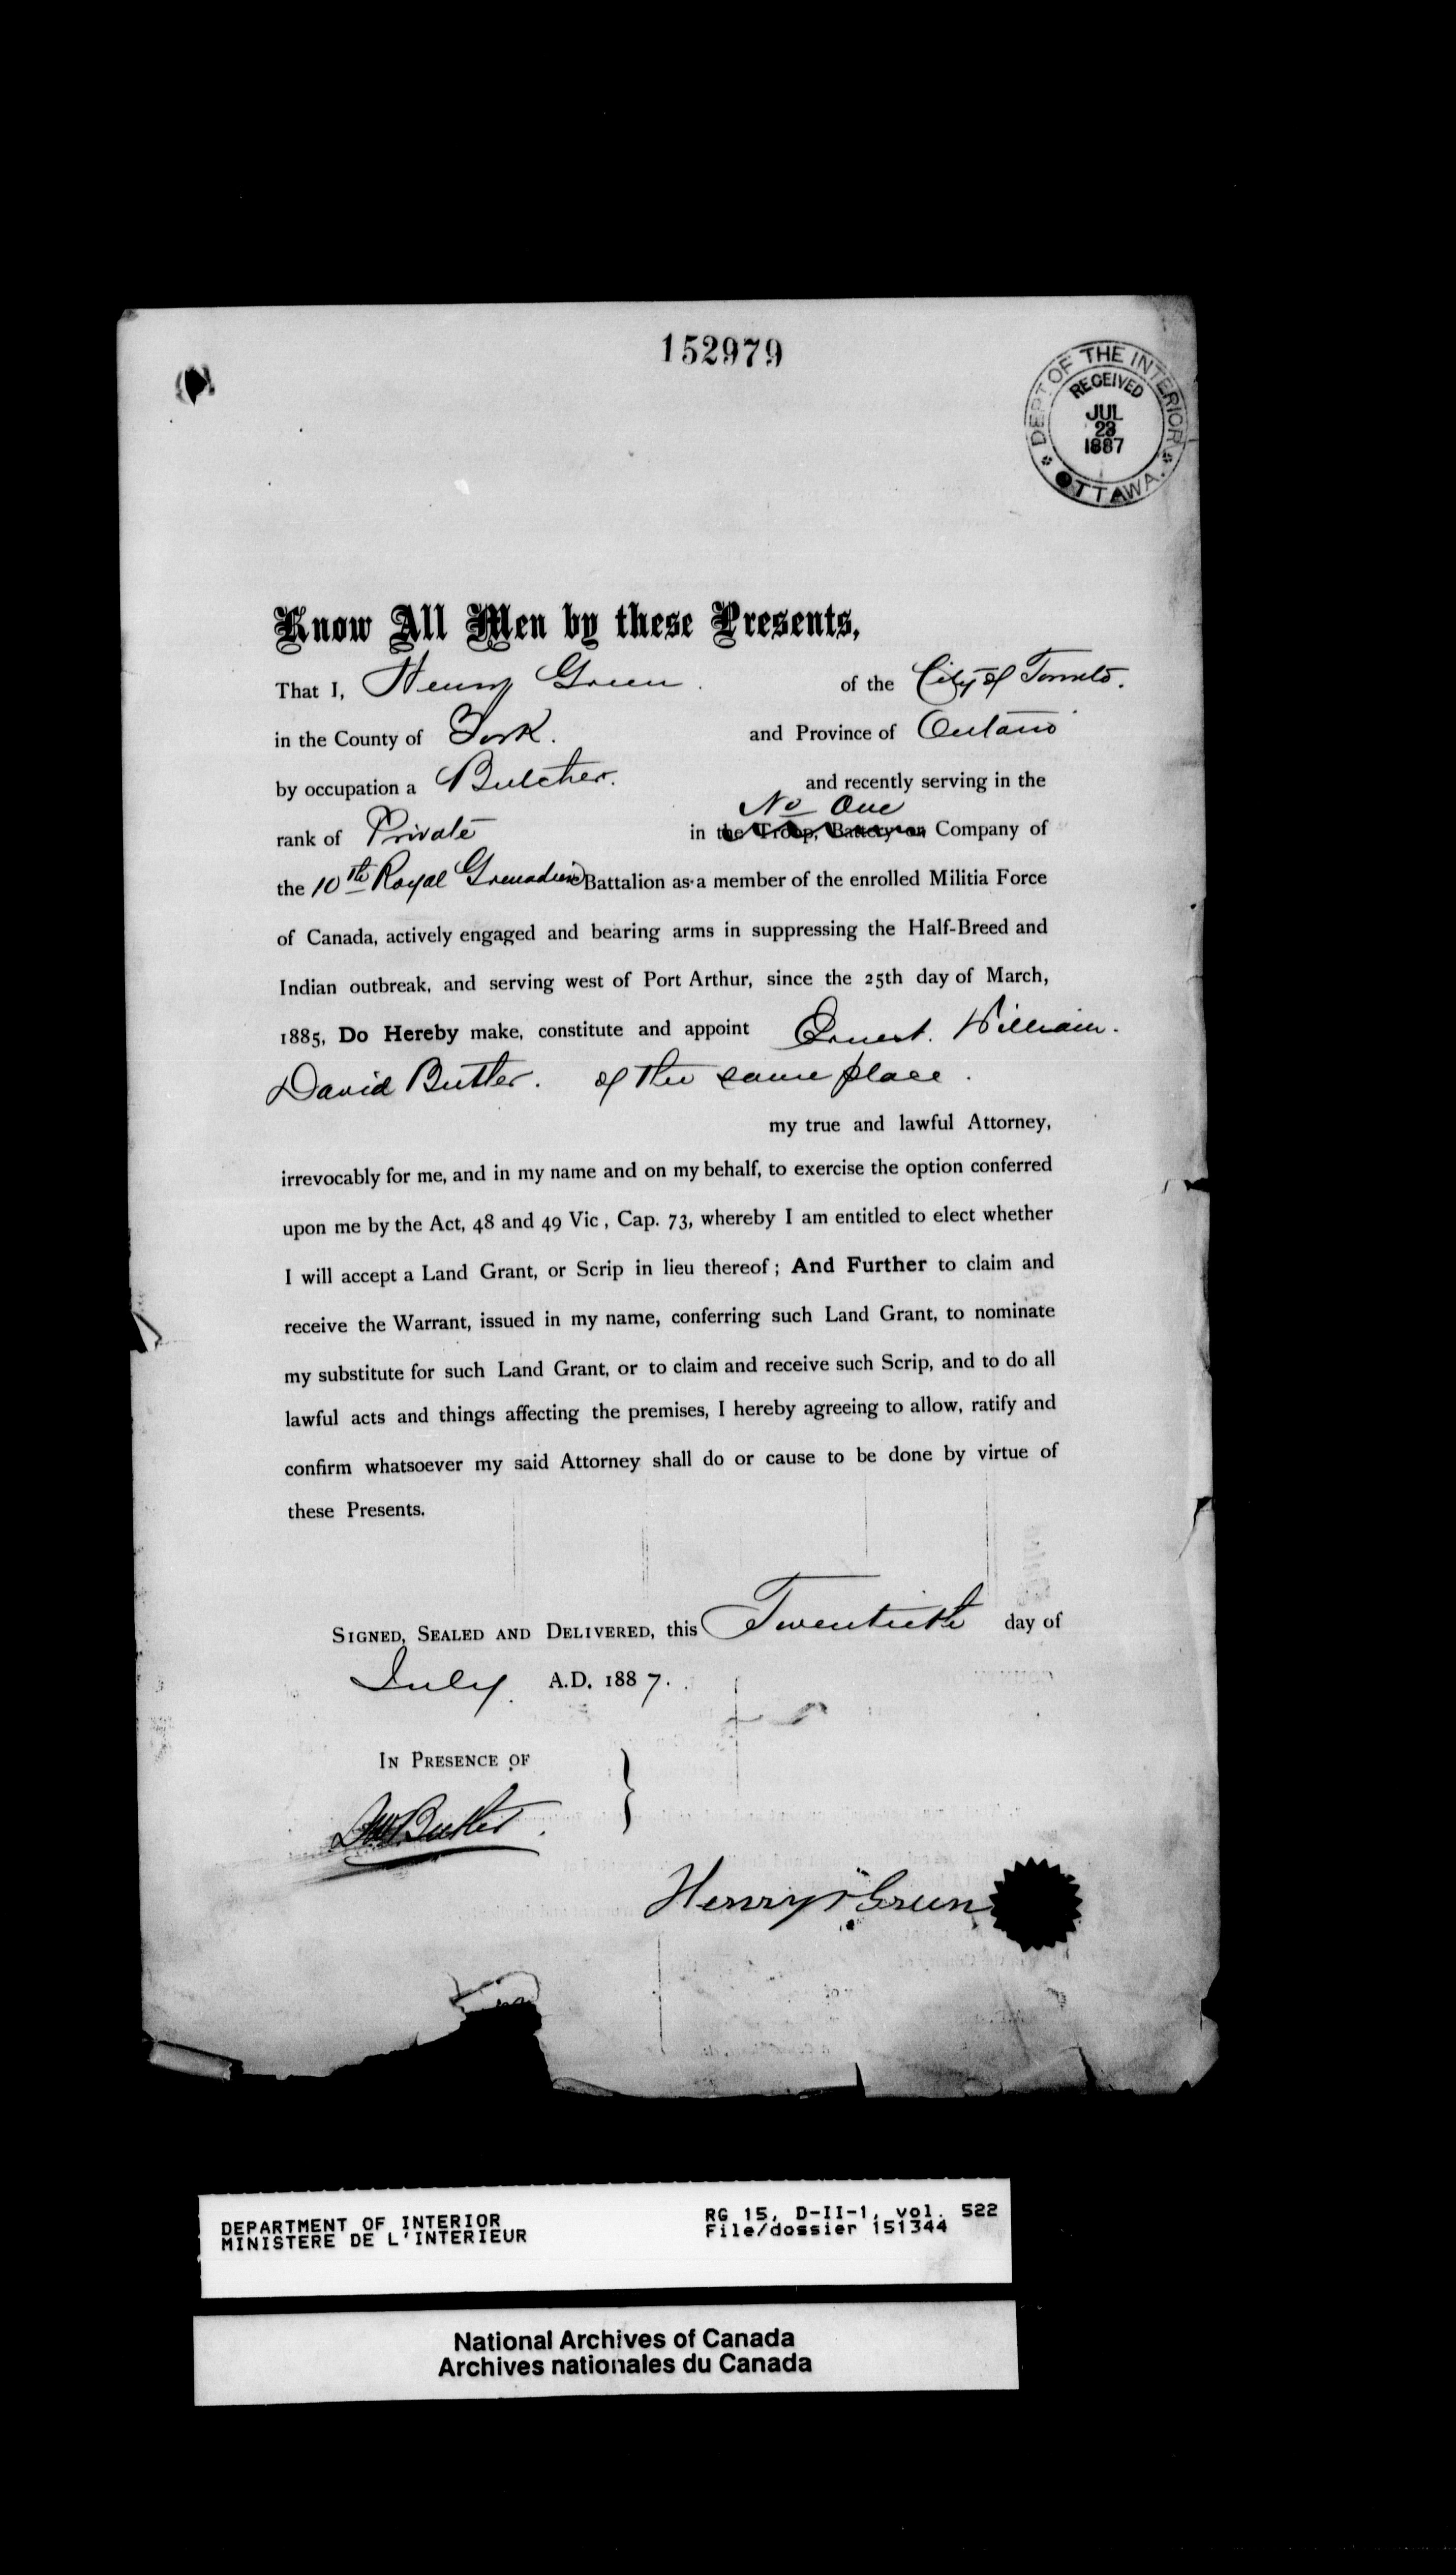 152979
DEPT OF THE INTERIOR
RECEIVED
JUL
23
1887
OTTAWA.
Know All Men by these Presents,
That I, Henry Green. of the City of Toronto.
in the County of York. and Province of Ontario
by occupation a Butcher. and recently serving in the
No One
rank of Private in the Troop, Battery or Company of
the 10th Royal Grenadiers Battalion as a member of the enrolled Militia Force
of Canada, actively engaged and bearing arms in suppressing the Half-Breed and
Indian outbreak, and serving west of Port Arthur, since the 25th day of March,
1885, Do Hereby make, constitute and appoint Ernest. William.
David Butler. of the same place.
my true and lawful Attorney,
irrevocably for me, and in my name and on my behalf, to exercise the option conferred
upon me by the Act, 48 and 49 Vic, Cap. 73, whereby I am entitled to elect whether
I will accept a Land Grant, or Scrip in lieu thereof; And Further to claim and
receive the Warrant, issued in my name, conferring such Land Grant, to nominate
my substitute for such Land Grant, or to claim and receive such Scrip, and to do all
lawful acts and things affecting the premises, I hereby agreeing to allow, ratify and
confirm whatsoever my said Attorney shall do or cause to be done by virtue of
these Presents.
SIGNED, SEALED AND DELIVERED, this Twentieth day of
July A.D. 1887.
IN PRESENCE OF
Butler
Henry Green
DEPARTMENT OF INTERIOR
MINISTERE DE L'INTERIEUR
RG 15, D-II-1, vol. 522
File/dossier 151344
National Archives of Canada
Archives nationales du Canada